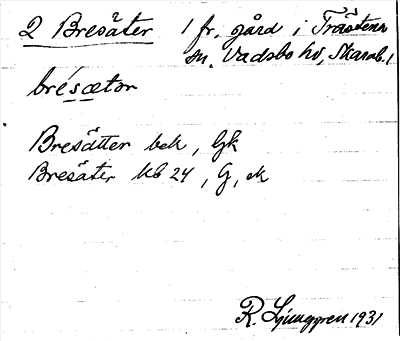 2 Bresäter 1 fr. gård i Trästena
sn. Vadsbo hd, Skarab. l
bre´sætər
Bresätter bek, Gk
Bresäter kb 24, G, ek
R. Ljunggren 1931